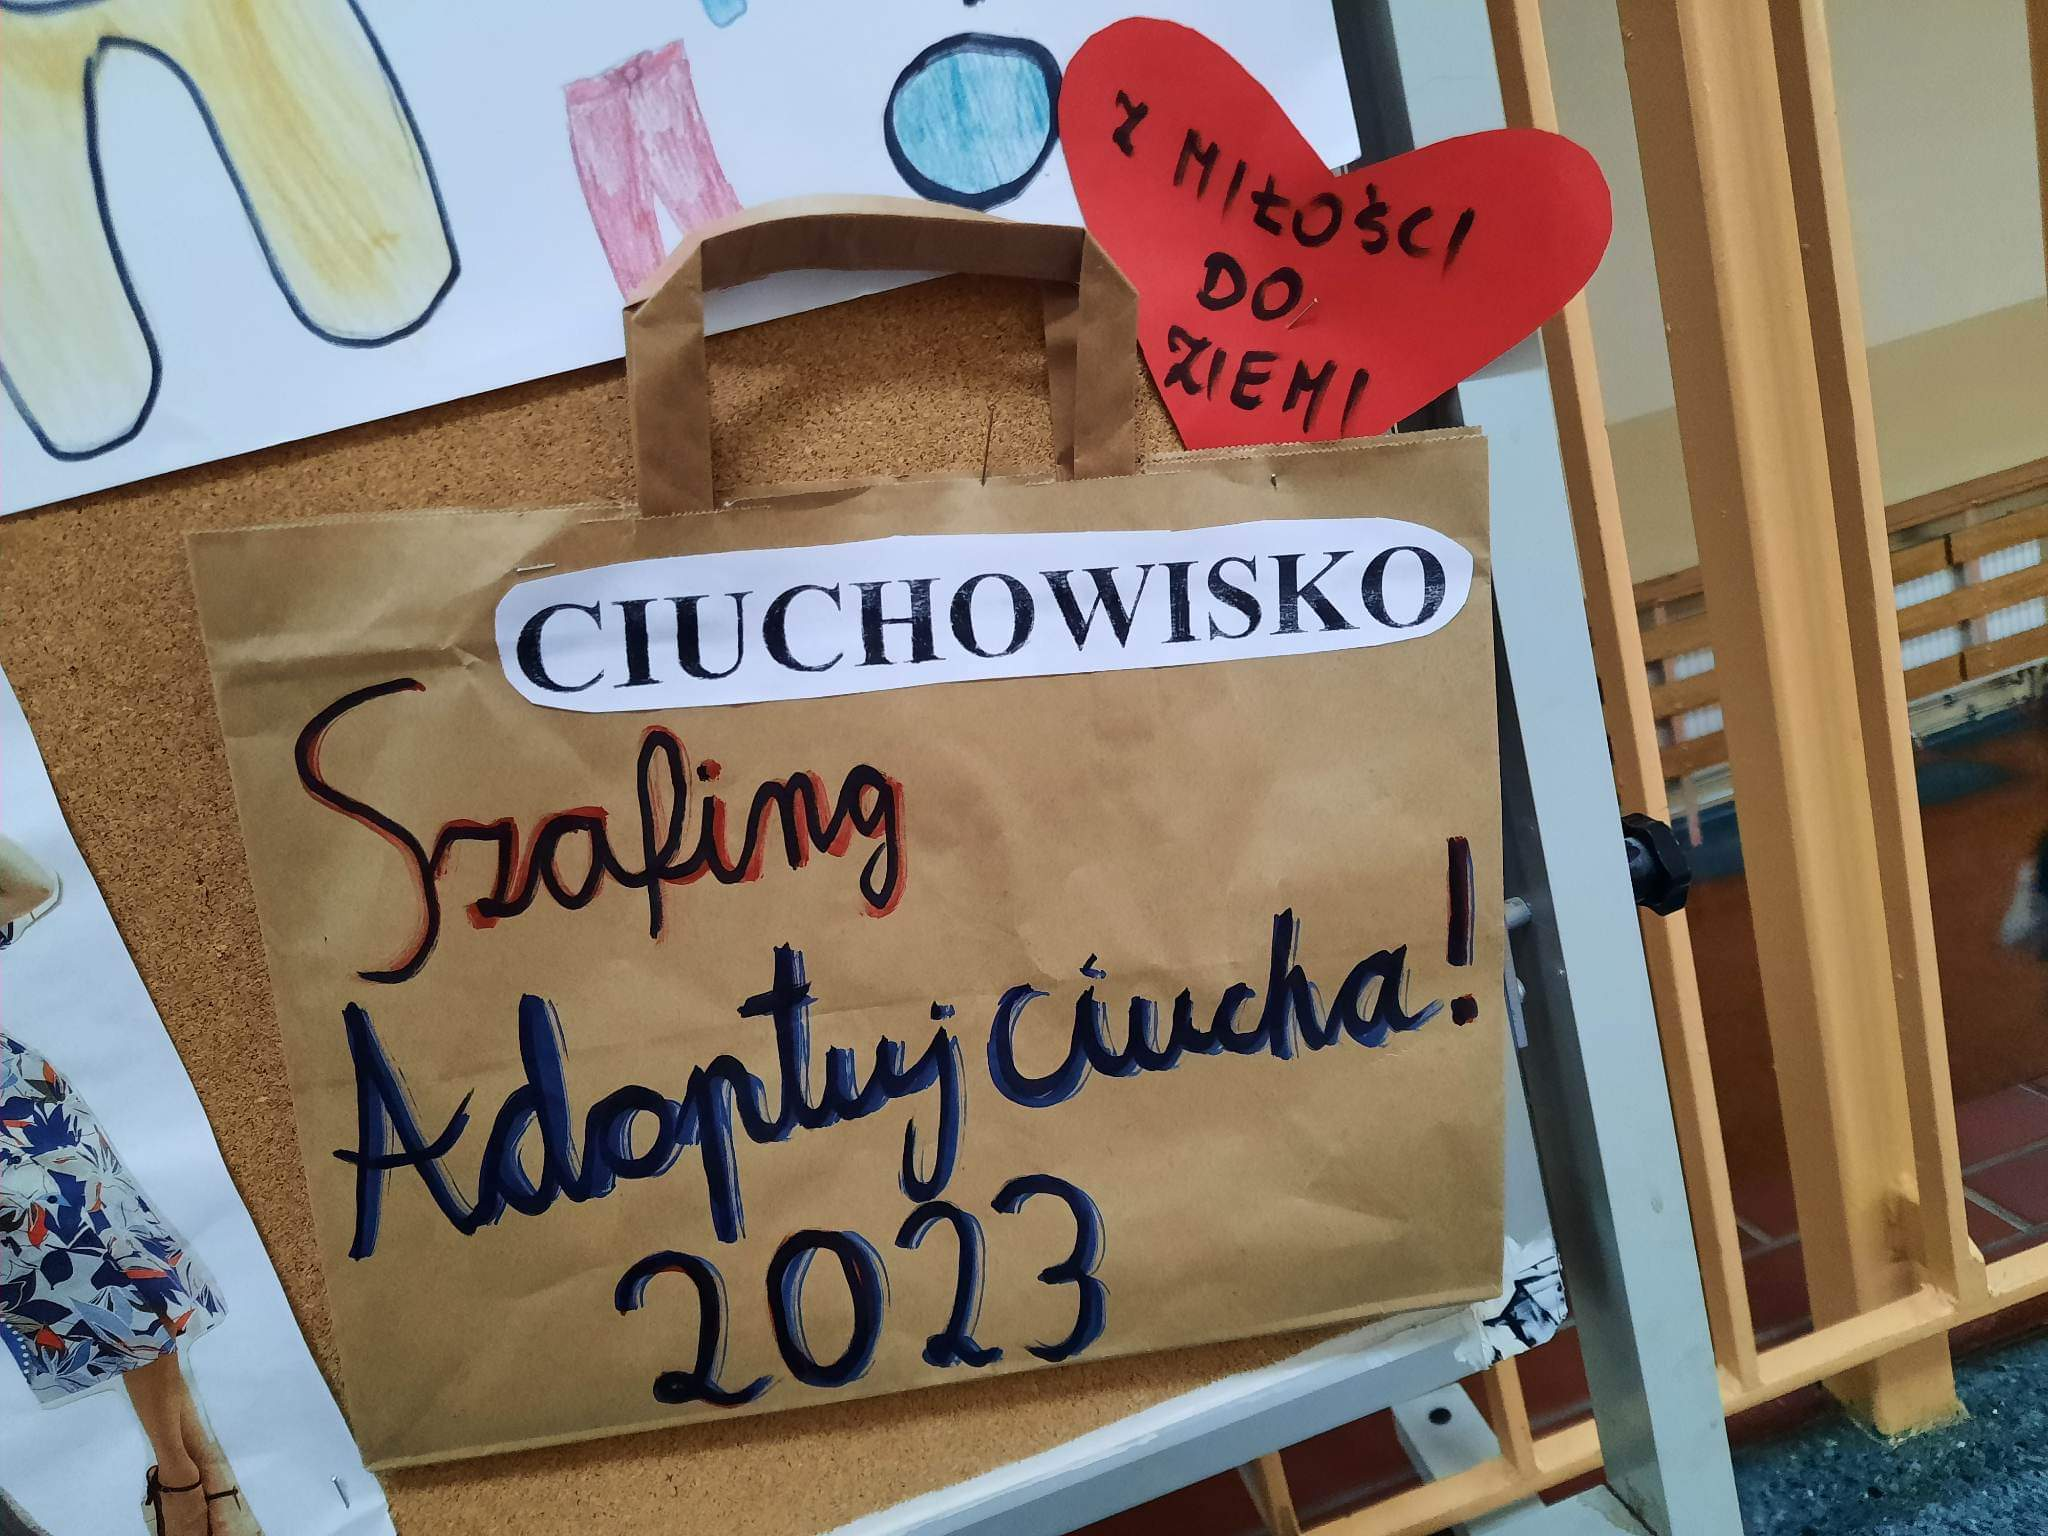 Z MIŁOŚCI
DO
ZIEMI
CIUCHOWISKO
Szafing
Adoptuj ciucha!
2023